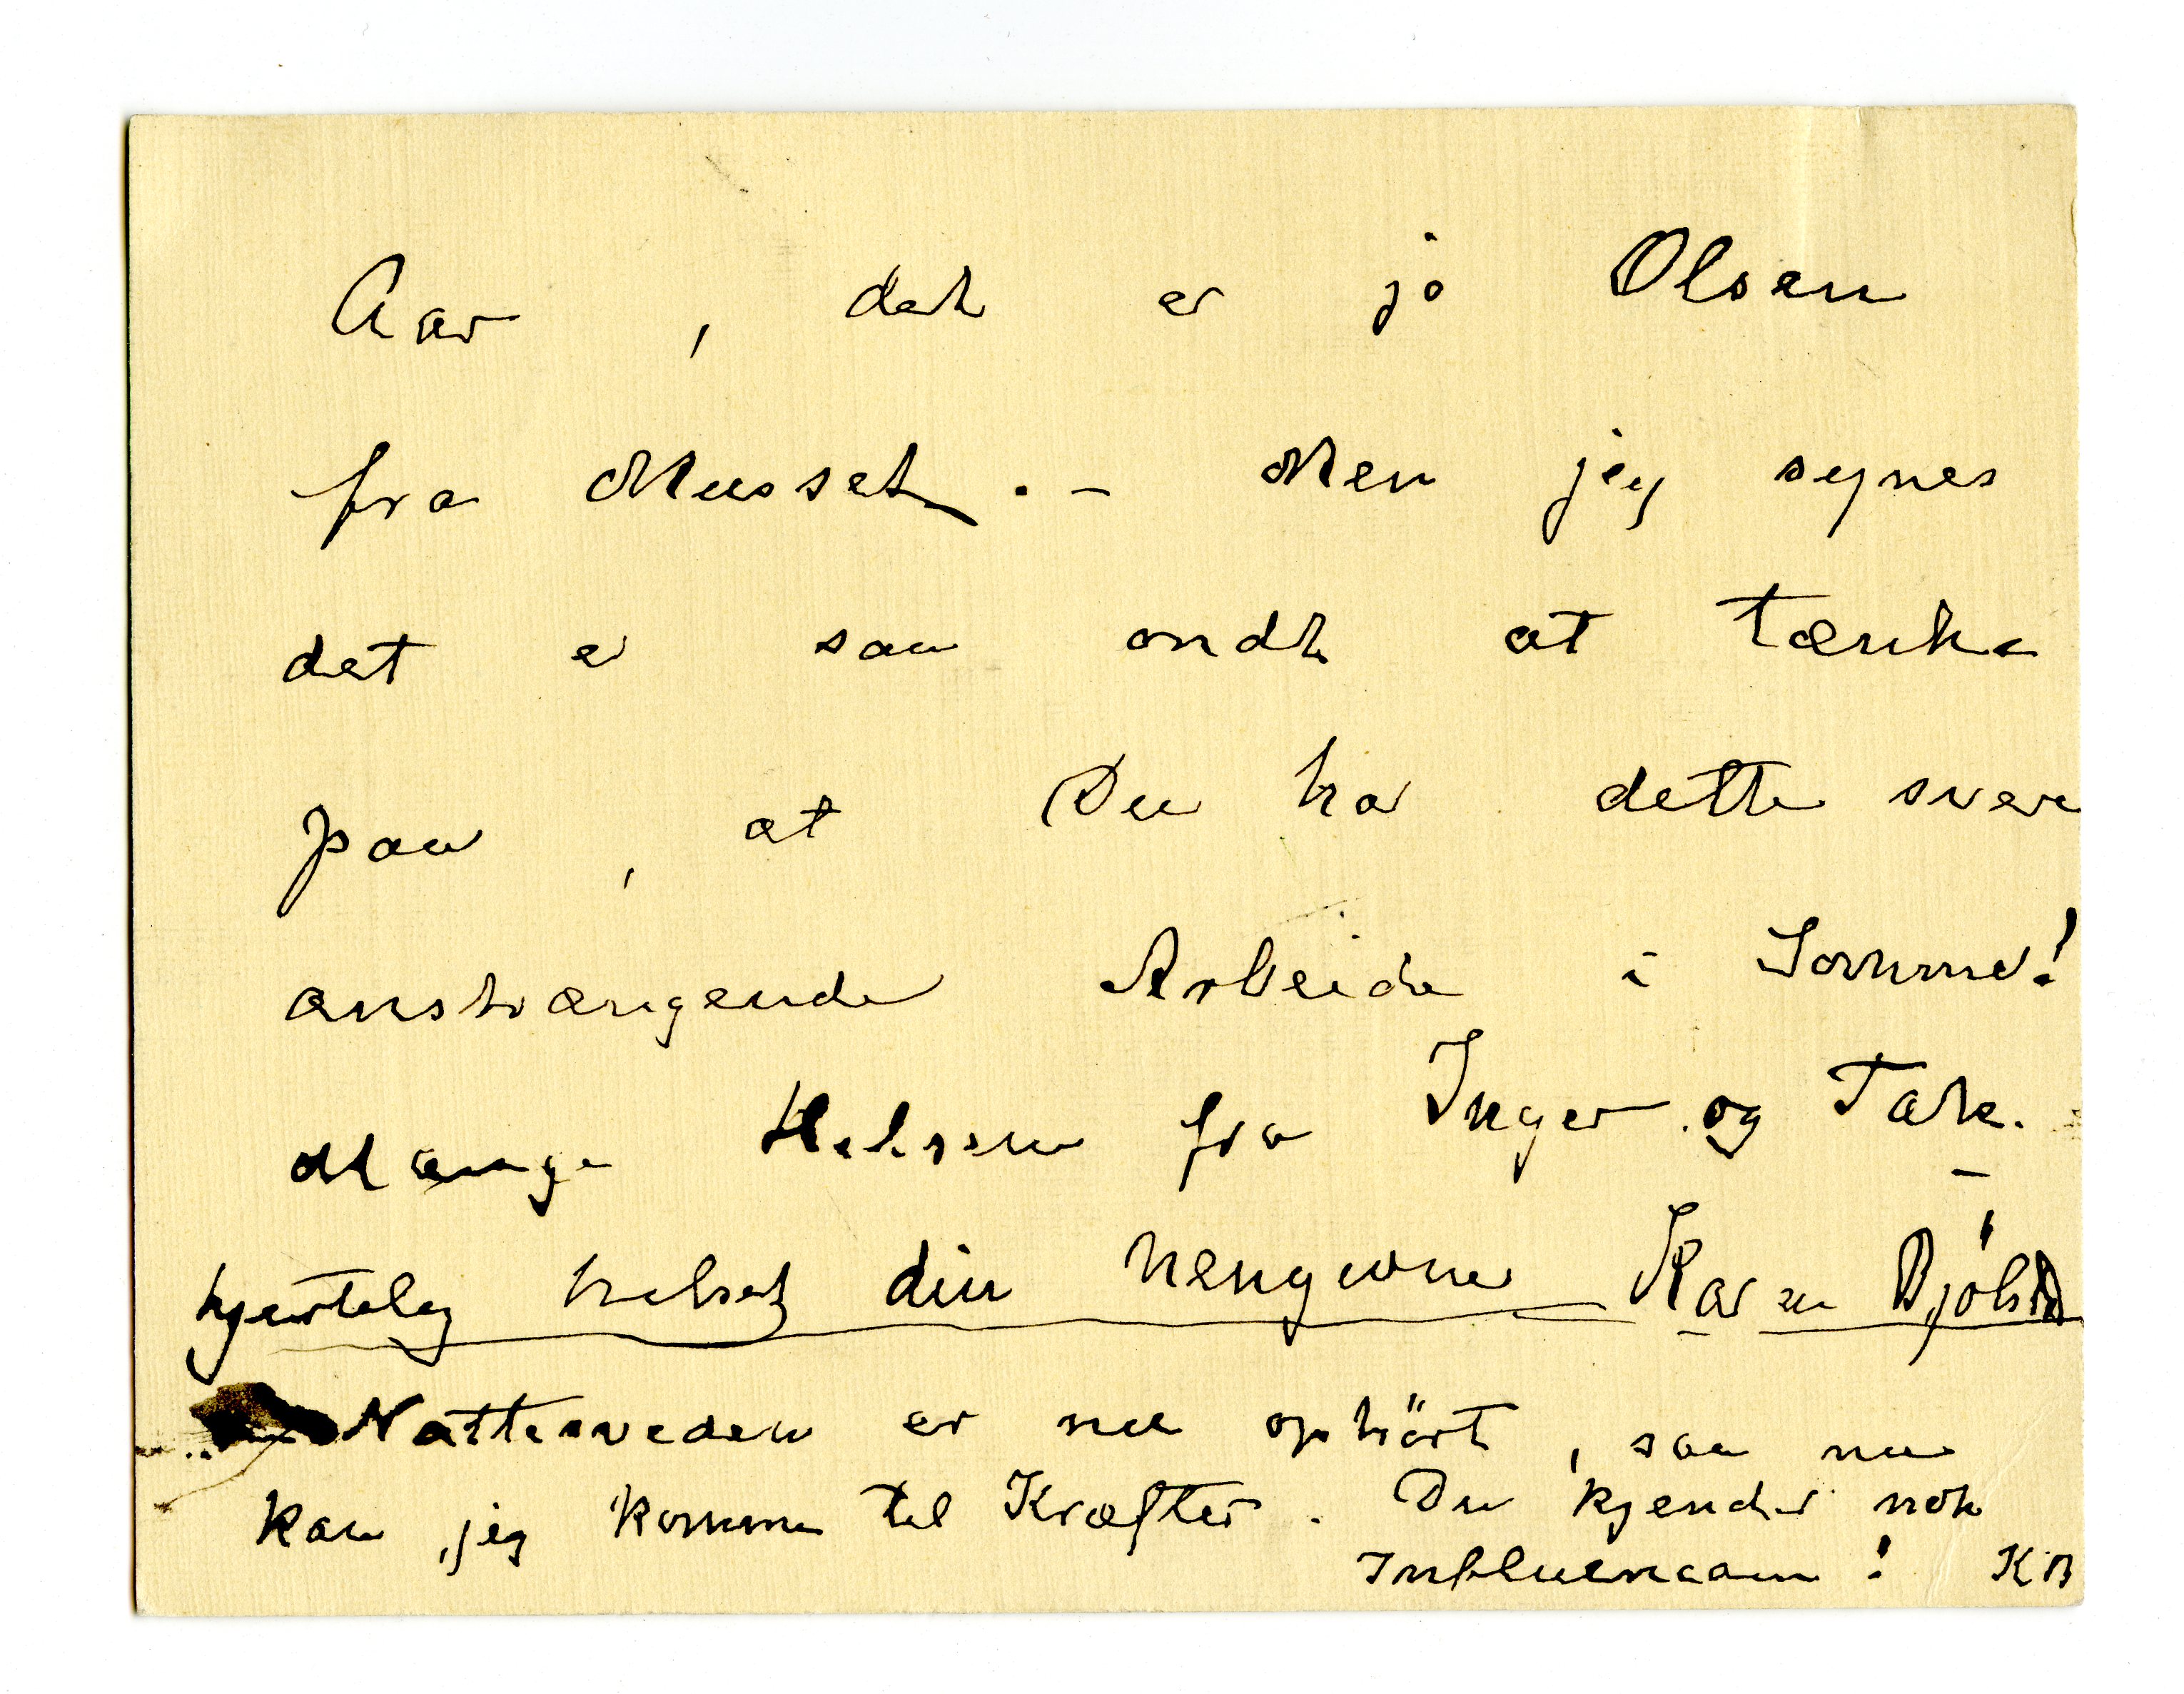 Aar, det er jo Olsen
fra Musset. - Men jeg synes
det er saa ondt at tænke
paa, at Du har dette svære
anstrængende Arbeide i Sommer!
Mange Helsen fra Inger og Tak.
hjertelig helset din hengivne Karen Bjølstad
Nattesveden er nu ophört, saa nu
kan jeg komme til Kræfter. Du kjender nok
Influencaen! KB